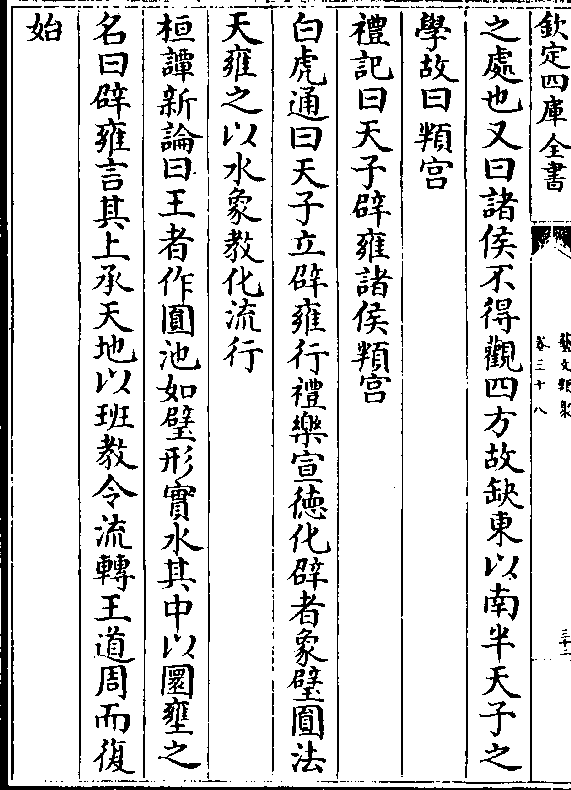 欽定四庫全書
藝文類聚
卷三十八
三十二
之處也又曰諸侯不得觀四方故缺東以南半天子之
學故曰頖宫
禮記曰天子辟雍諸侯頖宫
白虎通曰天子立辟雍行禮樂宣徳化辟者象璧圓法
天雍之以水象教化流行
桓譚新論曰王者作圓池如璧形實水其中以圜壅之
名曰辟雍言其上承天地以班教令流轉王道周而復
始